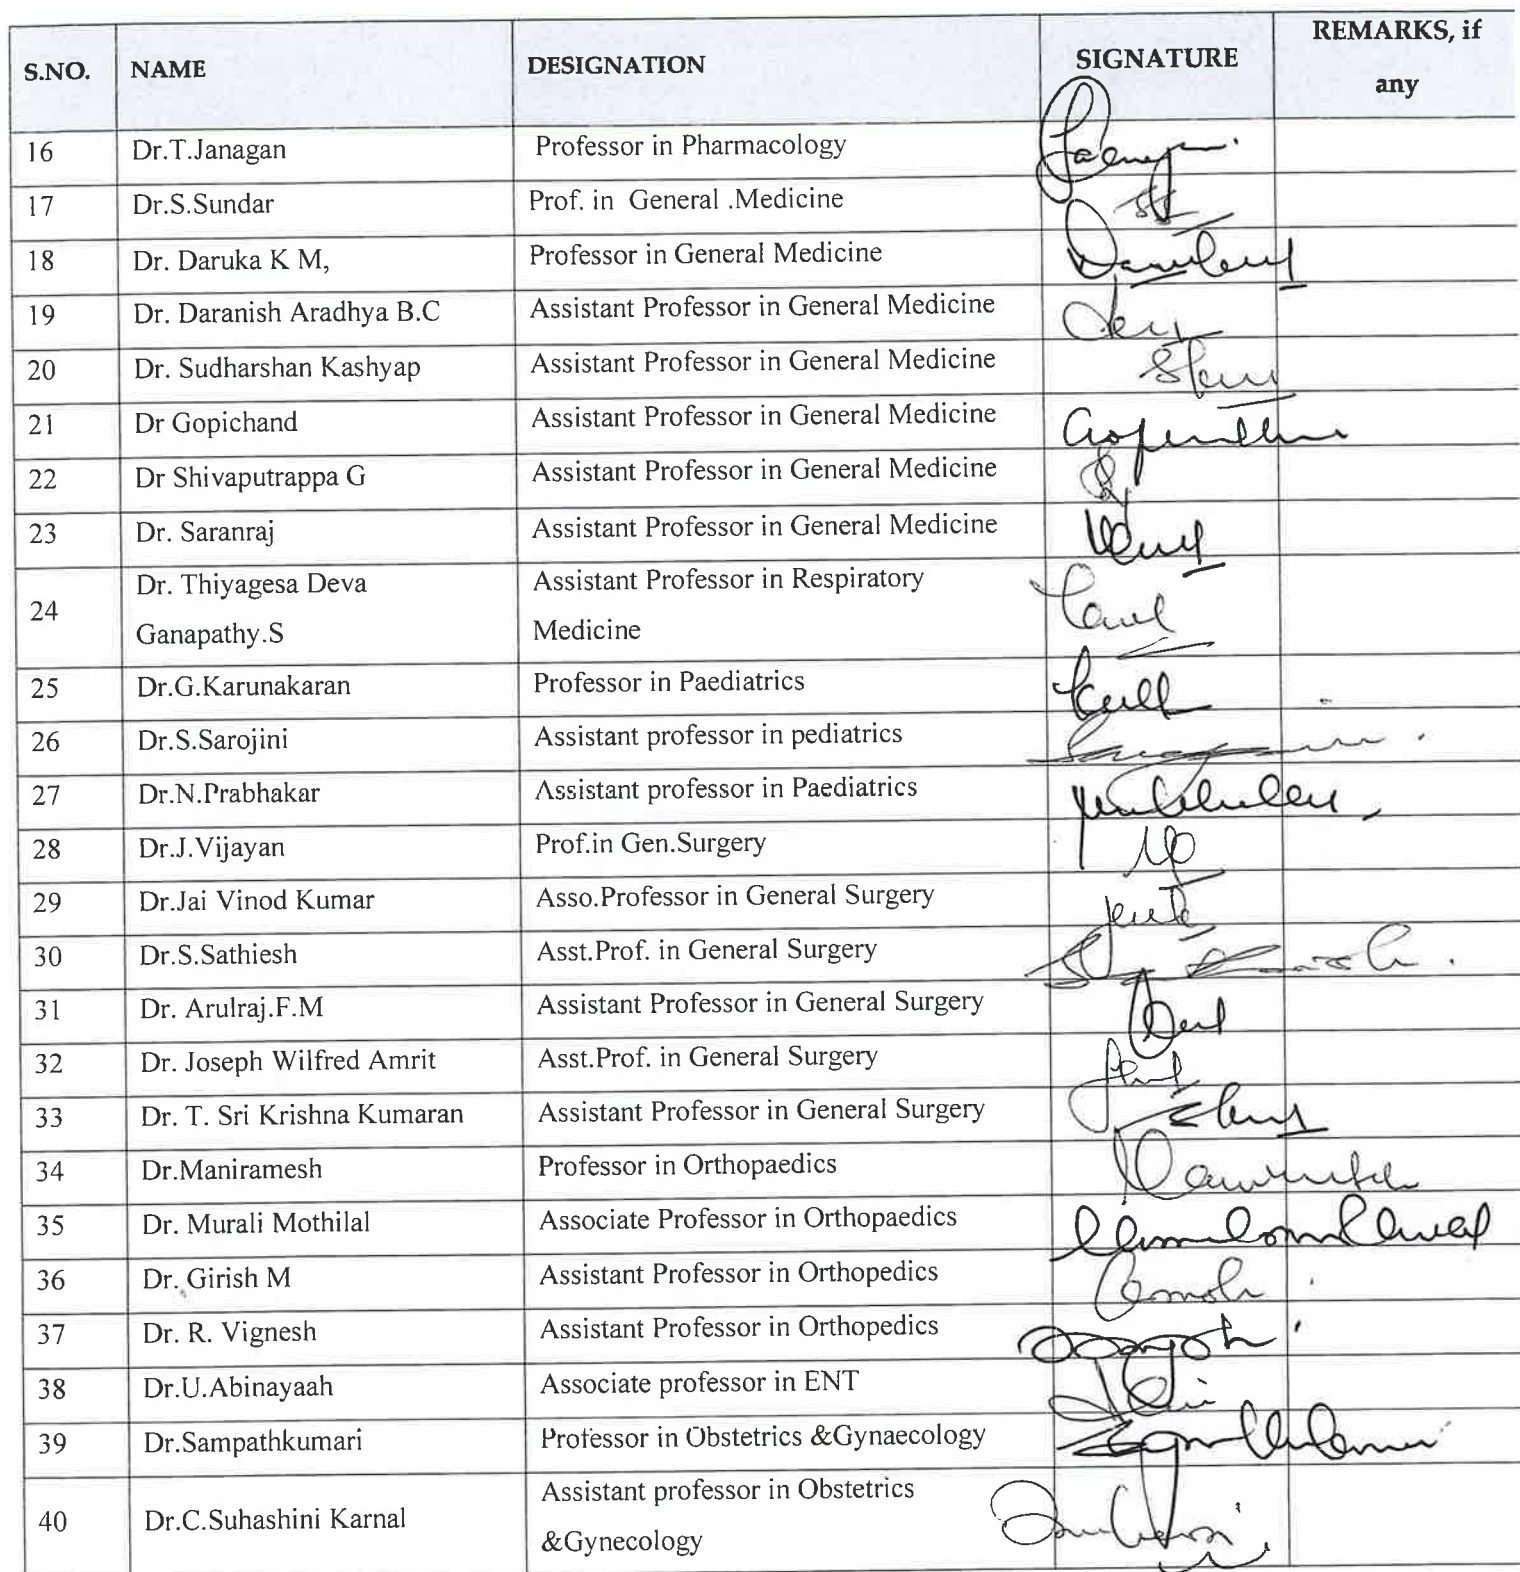 S.NO. NAME DESIGNATION SIGNATURE REMARKS, if
any
16 Dr.T.Janagan Professor in Pharmacology
17 Dr.S.Sundar Prof. in General .Medicine
18 Dr. Daruka K M, Professor in General Medicine
19 Dr. Daranish Aradhya B.C Assistant Professor in General Medicine
20 Dr. Sudharshan Kashyap Assistant Professor in General Medicine
21 Dr Gopichand Assistant Professor in General Medicine
22 Dr Shivaputrappa G Assistant Professor in General Medicine
23 Dr. Saranraj Assistant Professor in General Medicine
24 Dr. Thiyagesa Deva Assistant Professor in Respiratory
Ganapathy.S Medicine
25 Dr.G.Karunakaran Professor in Paediatrics
26 Dr.S.Sarojini Assistant professor in pediatrics
27 Dr.N.Prabhakar Assistant professor in Paediatrics
28 Dr.J.Vijayan Prof.in Gen.Surgery
29 Dr.Jai Vinod Kumar Asso.Professor in General Surgery
30 Dr.S.Sathiesh Asst.Prof. in General Surgery
31 Dr. Arulraj.F.M Assistant Professor in General Surgery
32 Dr. Joseph Wilfred Amrit Asst.Prof. in General Surgery
33 Dr. T. Sri Krishna Kumaran Assistant Professor in General Surgery
34 Dr.Maniramesh Professor in Orthopaedics
35 Dr. Murali Mothilal Associate Professor in Orthopaedics
36 Dr. Girish M Assistant Professor in Orthopedics
37 Dr. R. Vignesh Assistant Professor in Orthopedics
38 Dr.U.Abinayaah Associate professor in ENT
39 Dr.Sampathkumari Professor in Obstetrics &Gynaecology
40 Dr.C.Suhashini Karnal Assistant professor in Obstetrics
&Gynecology